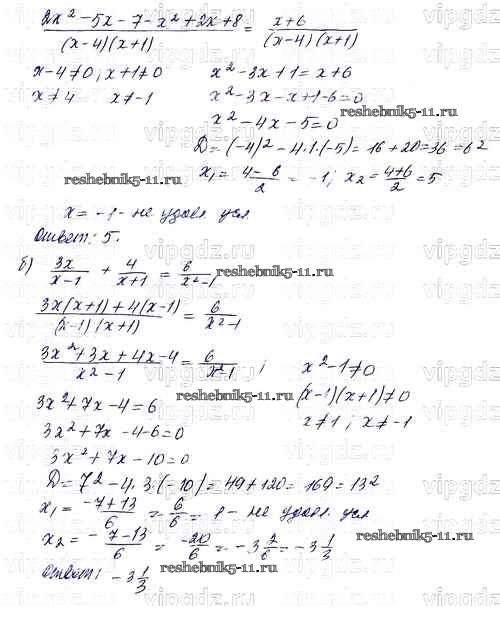 (2x² - 5x - 7 - x² + 2x + 8)/((x-4)(x+1)) = (x+6)/((x-4)(x+1))
x-4≠0; x+1≠0 x² - 3x + 1 = x + 6
x≠4 x≠-1 x² - 3x - x + 1 - 6 = 0
x² - 4x - 5 = 0
reshebnik5-11.ru
D = (-4)² - 4·1·(-5) = 16 + 20 = 36 = 6²
reshebnik5-11.ru
x₁ = (4-6)/2 = -1; x₂ = (4+6)/2 = 5
x = -1 - не удовл. усл
Ответ: 5.
б) 3x/(x-1) + 4/(x+1) = 6/(x²-1)
reshebnik5-11.ru
(3x(x+1) + 4(x-1))/((x-1)(x+1)) = 6/(x²-1)
(3x² + 3x + 4x - 4)/(x²-1) = 6/(x²-1); x² - 1 ≠ 0
3x² + 7x - 4 = 6 (x-1)(x+1) ≠ 0
3x² + 7x - 4 - 6 = 0 x≠1; x≠-1
3x² + 7x - 10 = 0
D = 7² - 4·3·(-10) = 49 + 120 = 169 = 13²
x₁ = (-7+13)/6 = 6/6 = 1 - не удовл. усл
x₂ = (-7-13)/6 = -20/6 = -3 2/6 = -3 1/3
reshebnik5-11.ru
Ответ: -3 1/3
reshebnik5-11.ru
vipgdz.ru